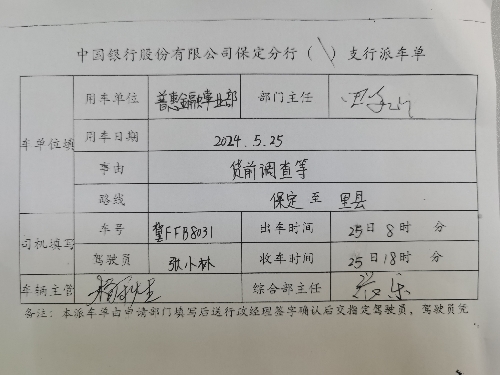 中国银行股份有限公司保定分行（\）支行派车单
用车单位 普惠金融事业部 部门主任
车单位填 用车日期 2024.5.25
事由 贷前调查等
路线 保定至里县
司机填写 车号 冀FFB8031 出车时间 25日8时 分
驾驶员 张小林 收车时间 25日18时 分
车辆主管 综合部主任
备注：本派车单由申请部门填写后送行政经理签字确认后交指定驾驶员，驾驶员凭